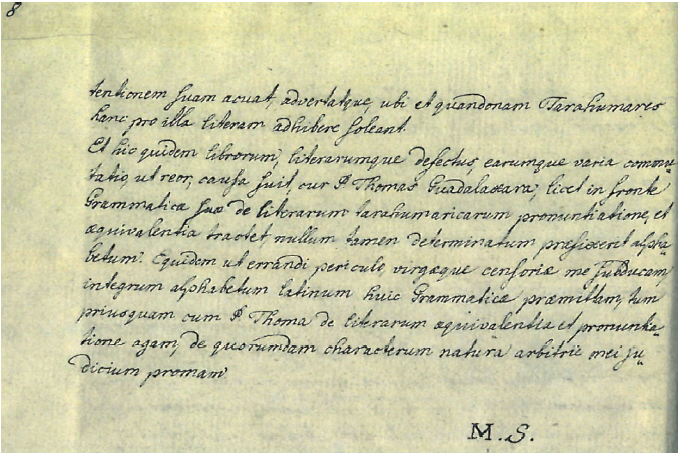 8
tentionem suam acuat, advertatque, ubi et quandonam Tarahumares
hanc pro illa literam adhibere soleant.
Et hic quidem librorum, literarumque defectus, earumque varia commu-
tatio, ut reor, causa fuit, cur P. Thomas Guadalaxara, licet in fronte
Grammaticæ suæ de literarum tarahumaricarum pronuntiatione, et
æquivalentia tractet nullum tamen determinatum præfixerit alpha-
betum. Equidem ut errandi periculo, virgæque censoriæ me subducam,
integrum alphabetum latinum huic Grammaticæ præmittam, tum
priusquam cum P. Thoma de literarum æquivalentia et pronuntia-
tione agam, de quorumdam characterum natura arbitrii mei ju-
dicium promam
M. S.